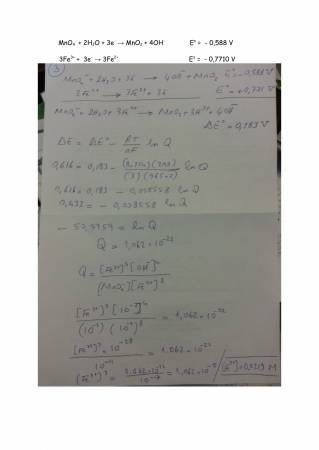 MnO₄⁻ + 2H₂O + 3e⁻ → MnO₂ + 4OH⁻ E° = - 0,588 V
3Fe³⁺ + 3e⁻ → 3Fe²⁺ E° = - 0,7710 V
③
MnO₄⁻ + 2H₂O + 3e⁻ → 4OH⁻ + MnO₂ E° = -0,588 V
3Fe²⁺ → 3Fe³⁺ + 3e E° = +0,771 V
MnO₄⁻ + 2H₂O + 3Fe²⁺ → MnO₂ + 3Fe³⁺ + 4OH⁻
ΔE° = 0,183 V
ΔE = ΔE° - RT/nF ln Q
0,616 = 0,183 - (8,314)(298)/(3)(96500) ln Q
0,616 = 0,183 - 0,008558 ln Q
0,433 = - 0,008558 ln Q
- 50,5959 = ln Q
Q = 1,062×10⁻²²
Q = [Fe³⁺]³ [OH⁻]⁴ / (MnO₄⁻) [Fe²⁺]³
[Fe³⁺]³ [10⁻⁷]⁴ / (10⁻²) (10⁻³)³ = 1,062×10⁻²²
[Fe³⁺]³ × 10⁻²⁸ / 10⁻¹¹ = 1,062×10⁻²²
(Fe³⁺)³ = 1,062×10⁻²² / 10⁻¹⁷ = 1,062×10⁻⁵ [Fe³⁺] = 0,0219 M